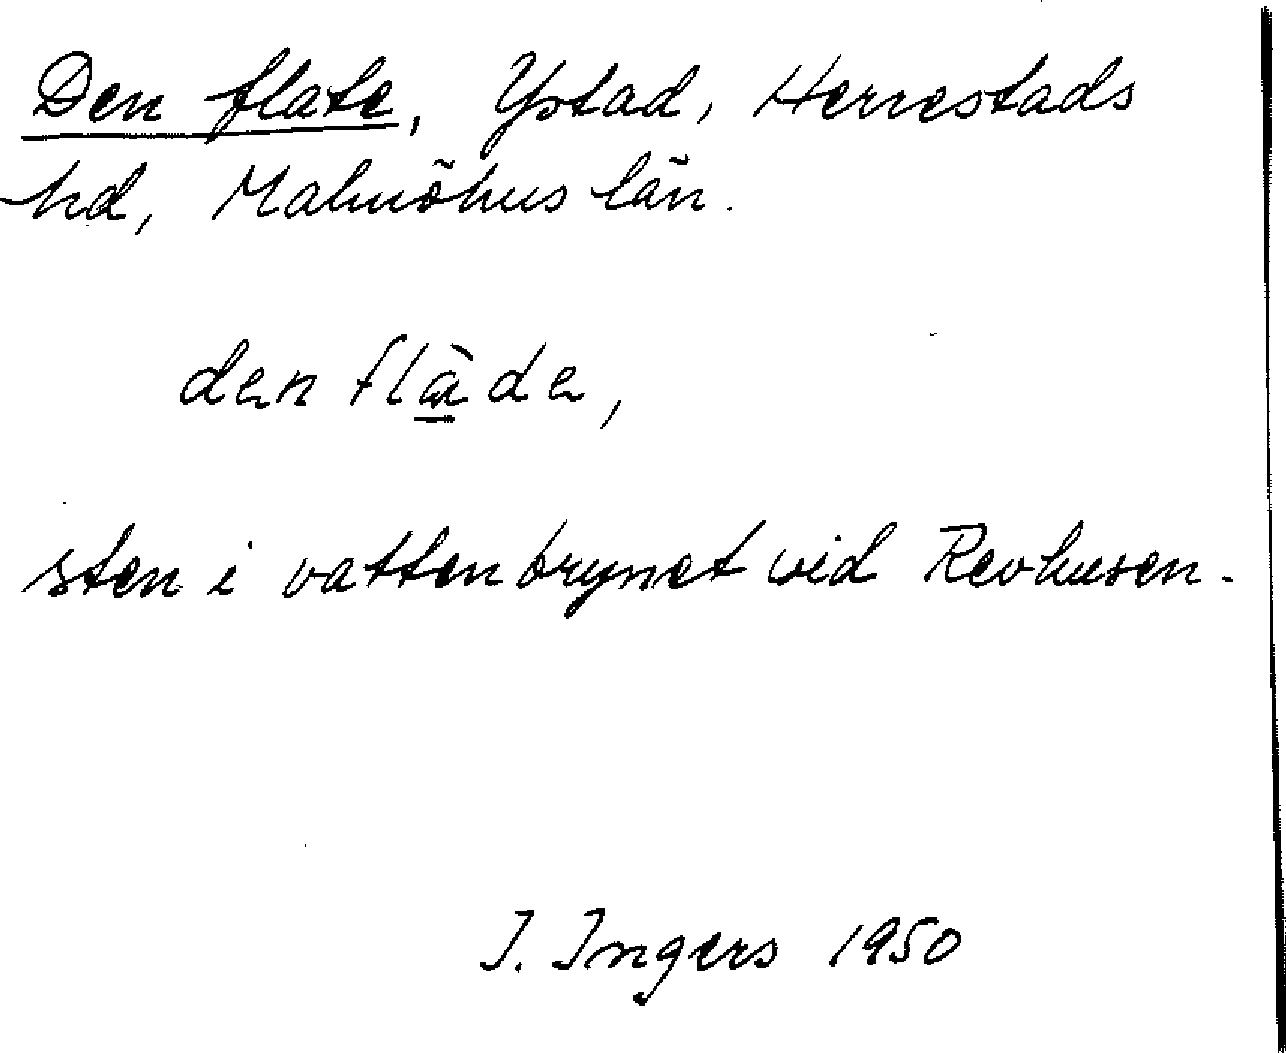 Den flate, Ystad, Herrestads
hd, Malmöhus län.
den flàde,
sten i vattenbrynet vid Revhusen.
I. Ingers 1950